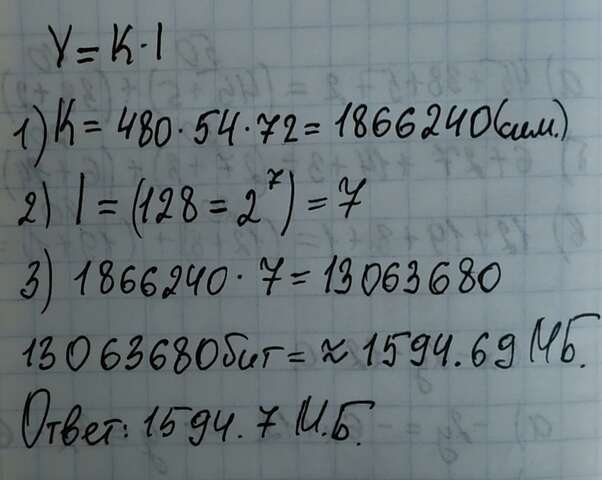 Y = K · I
1) K = 480 · 54 · 72 = 1866240 (сим.)
2) I = (128 = 2⁷) = 7
3) 1866240 · 7 = 13063680
13063680 бит = ≈ 1594.69 МБ.
Ответ: 1594.7 М.Б.